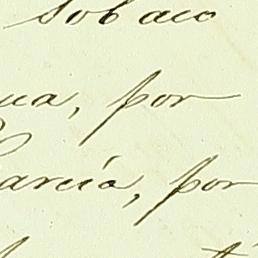 sobaco
ua, por
García, por